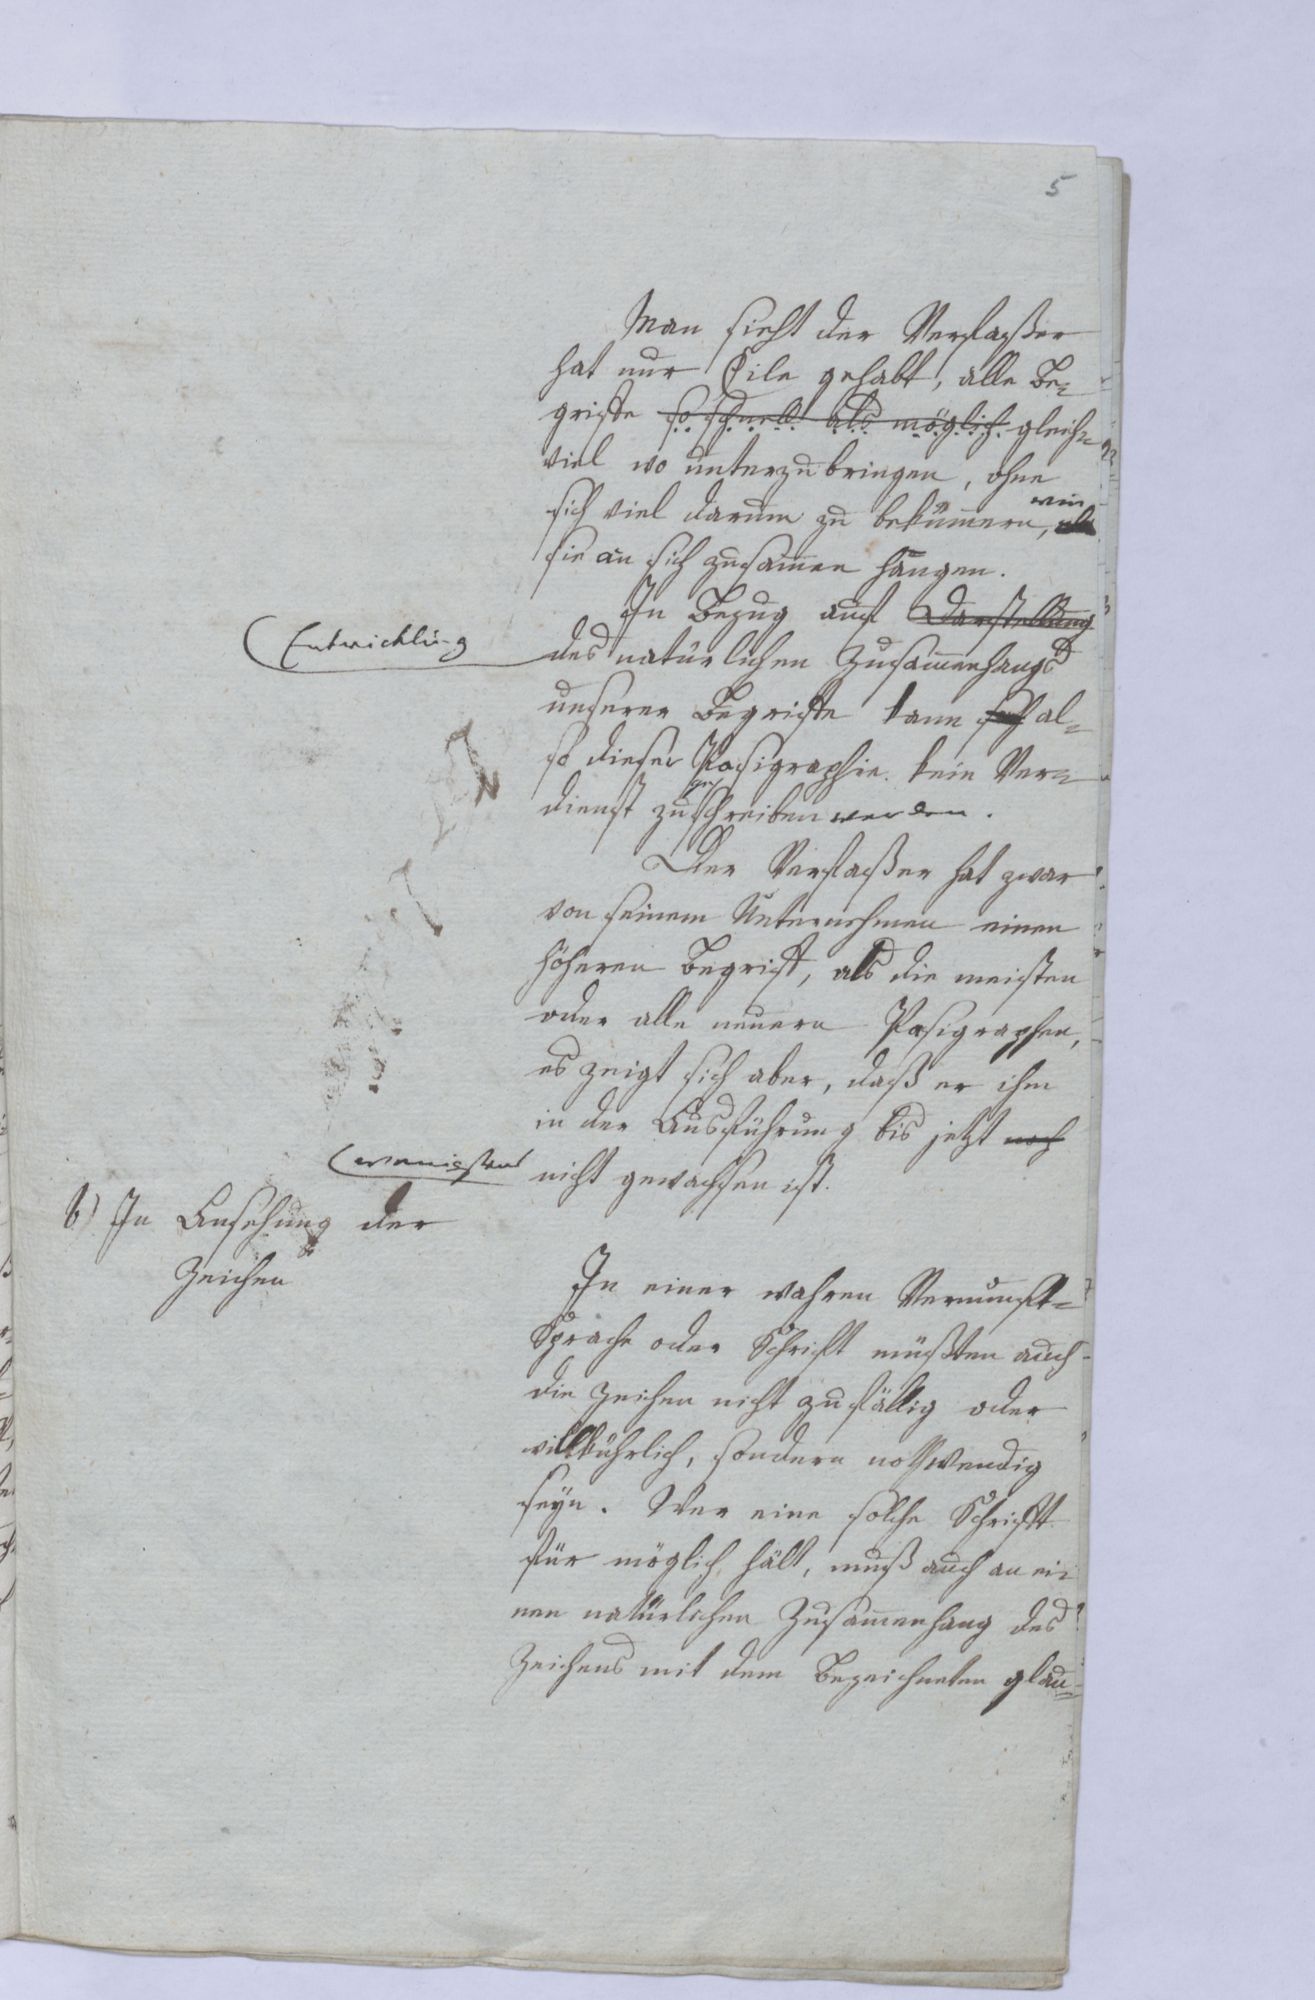 5
Man sieht der Verfaßer
hat nur Eile gehabt, alle Be-
griffe so schnell als möglich gleich-
viel wo unterzubringen, ohne
sich viel darum zu bekümmern, wie
sie an sich zusammen hängen.
In Bezug auf Darstellung
Entwicklung
des natürlichen Zusammenhangs
unserer Begriffe kann al-
so dieser Pasigraphie kein Ver-
dienst zugeschrieben werden.
Der Verfaßer hat zwar
von seinem Unternehmen einen
höheren Begriff, als die meisten
oder alle neuern Pasigraphen,
es zeigt sich aber, daß er ihm
in der Ausführung bis jetzt noch
wenigstens
nicht gewachsen ist.
b) In Ansehung der
Zeichen
In einer wahren Vernunft-
Sprache oder Schrift müßten auch
die Zeichen nicht zufällig oder
willkührlich, sondern nothwendig
seyn. Wer eine solche Schrift
für möglich hält, muß auch an ei-
nen natürlichen Zusammenhang des
Zeichens mit dem Bezeichneten glau-